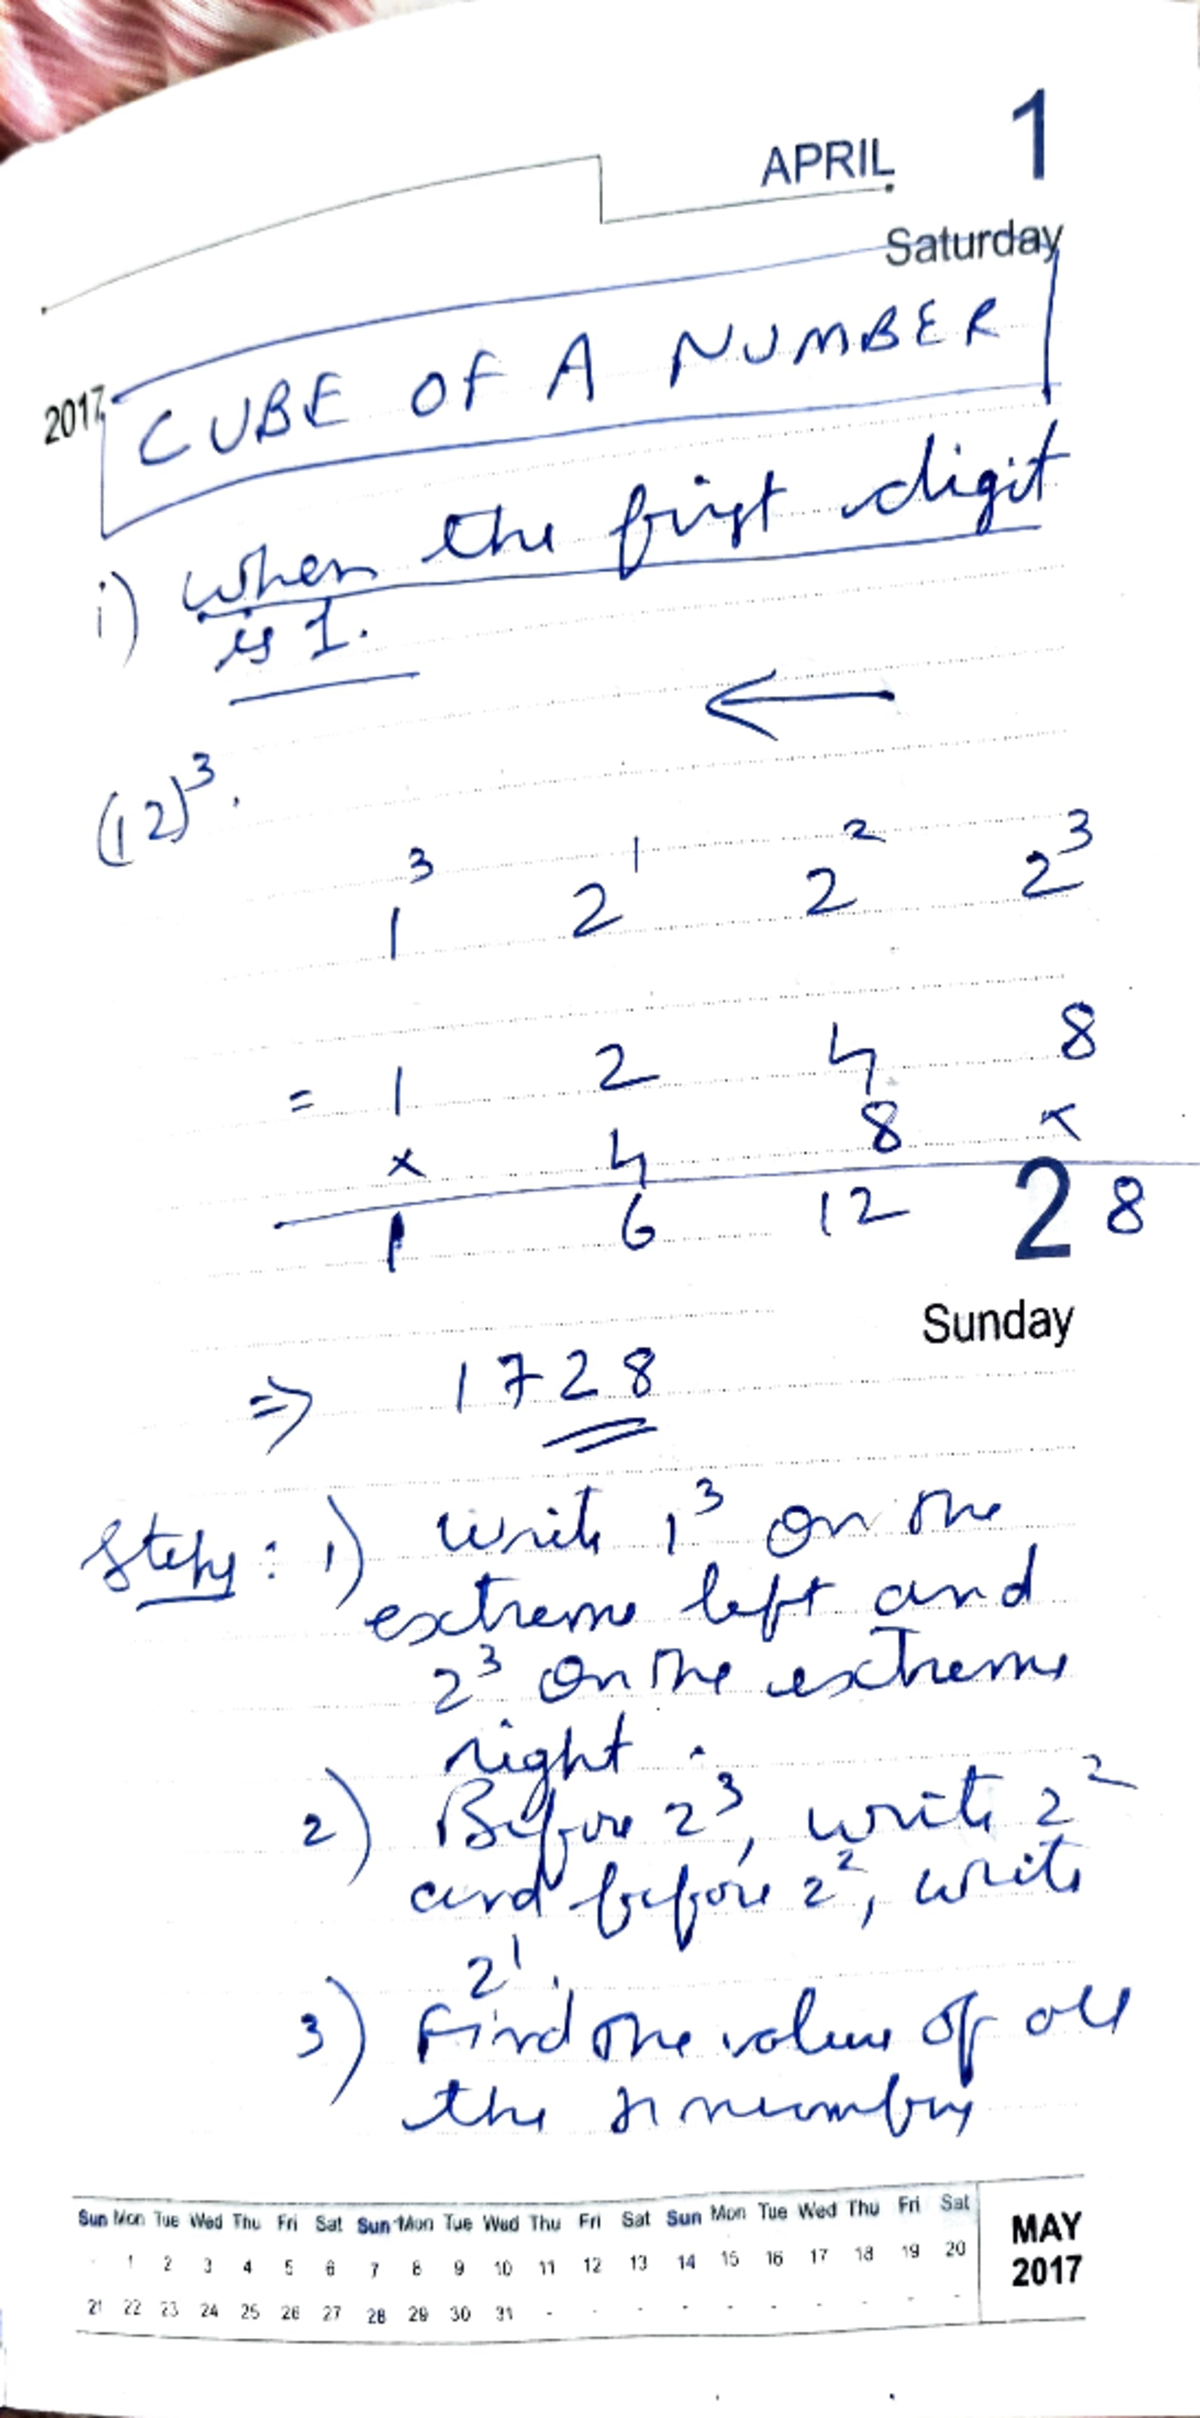 APRIL 1
Saturday
2017
CUBE OF A NUMBER
i) when the first digit
is 1.
←
(12)³.
1³ 2¹ 2² 2³
= 1 2 4 8
× 4 8 ×
1 6 12 8
2
Sunday
⇒ 1728
Steps: 1) Write 1³ on the
extreme left and
2³ on the extreme
right.
2) Before 2³, write 2²
and before 2², write
2¹.
3) Find the value of all
the numbers
Sun Mon Tue Wed Thu Fri Sat Sun Mon Tue Wed Thu Fri Sat Sun Mon Tue Wed Thu Fri Sat
· 1 2 3 4 5 6 7 8 9 10 11 12 13 14 15 16 17 18 19 20
21 22 23 24 25 26 27 28 29 30 31 - - - - - - - - - -
MAY
2017